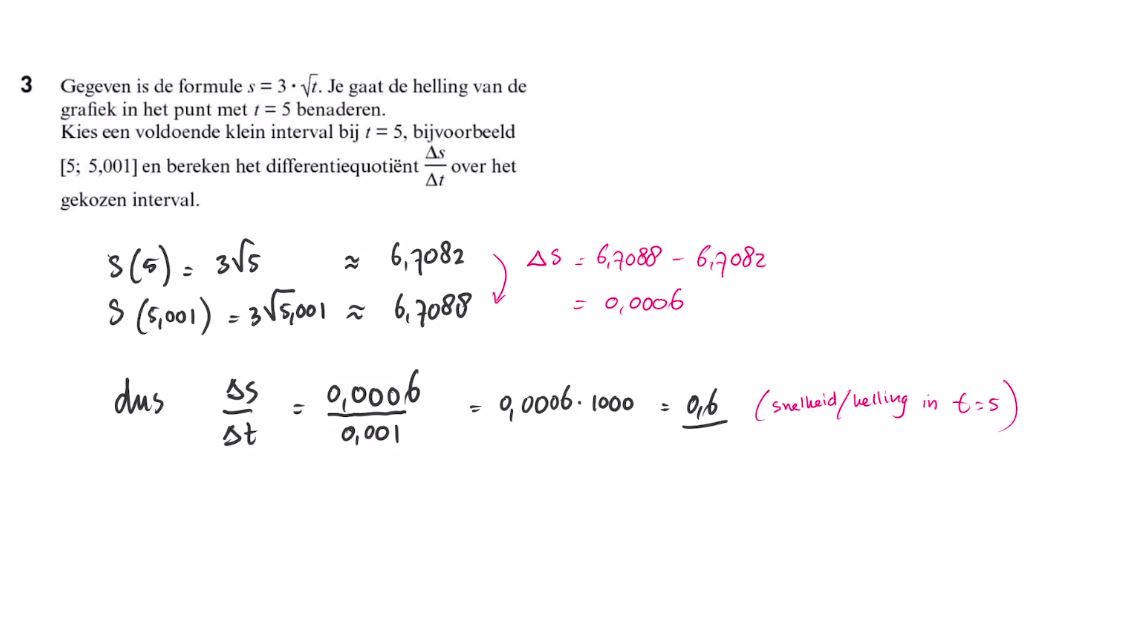 3 Gegeven is de formule s = 3 · √t. Je gaat de helling van de
grafiek in het punt met t = 5 benaderen.
Kies een voldoende klein interval bij t = 5, bijvoorbeeld
[5; 5,001] en bereken het differentiequotiënt Δs/Δt over het
gekozen interval.
S(5) = 3√5 ≈ 6,7082
S(5,001) = 3√5,001 ≈ 6,7088
ΔS = 6,7088 - 6,7082
= 0,0006
dus ΔS/Δt = 0,0006/0,001 = 0,0006 · 1000 = 0,6 (snelheid/helling in t=5)